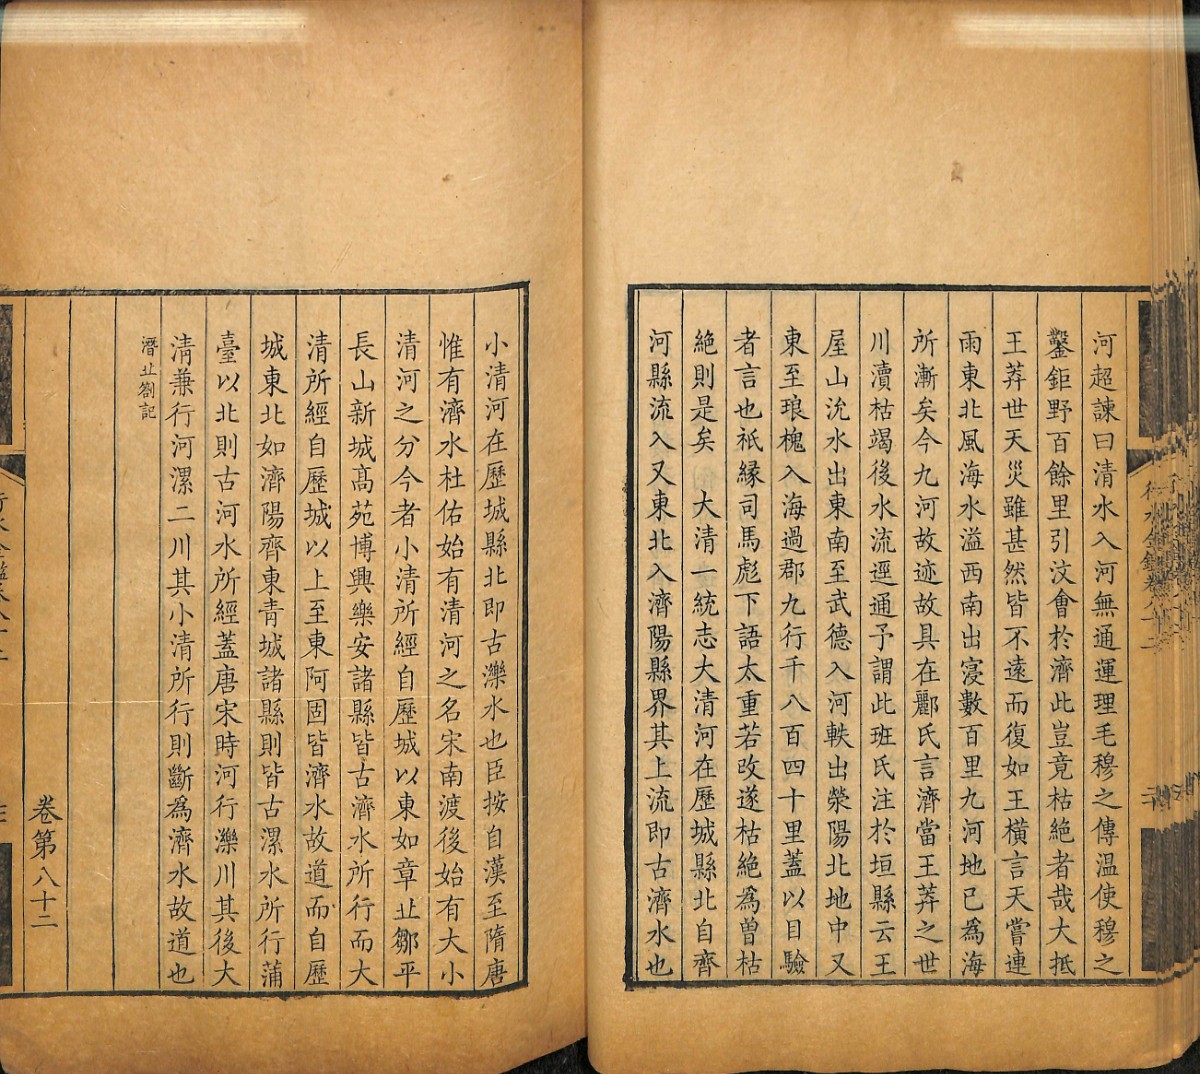 河超諫曰清水入河無通運理毛穆之傳溫使穆之
鑿鉅野百餘里引汶會於濟此豈竟枯絕者哉大抵
王莽世天災雖甚然皆不遠而復如王橫言天嘗連
雨東北風海水溢西南出寖數百里九河地已為海
所漸矣今九河故迹故具在酈氏言濟當王莽之世
川瀆枯竭後水流逕通予謂此班氏注於垣縣云王
屋山沇水出東南至武德入河軼出滎陽北地中又
東至琅槐入海過郡九行千八百四十里蓋以目驗
者言也祇緣司馬彪下語太重若改遂枯絕為曾枯
絕則是矣　大清一統志大清河在歷城縣北自齊
河縣流入又東北入濟陽縣界其上流即古濟水也
小清河在歷城縣北即古濼水也臣按自漢至隋唐
惟有濟水杜佑始有清河之名宋南渡後始有大小
清河之分今者小清所經自歷城以東如章丠鄒平
長山新城高苑博興樂安諸縣皆古濟水所行而大
清所經自歷城以上至東阿固皆濟水故道而自歷
城東北如濟陽齊東青城諸縣則皆古漯水所行蒲
臺以北則古河水所經蓋唐宋時河行濼川其後大
清兼行河漯二川其小清所行則斷為濟水故道也
潛丠劄記
卷第八十二